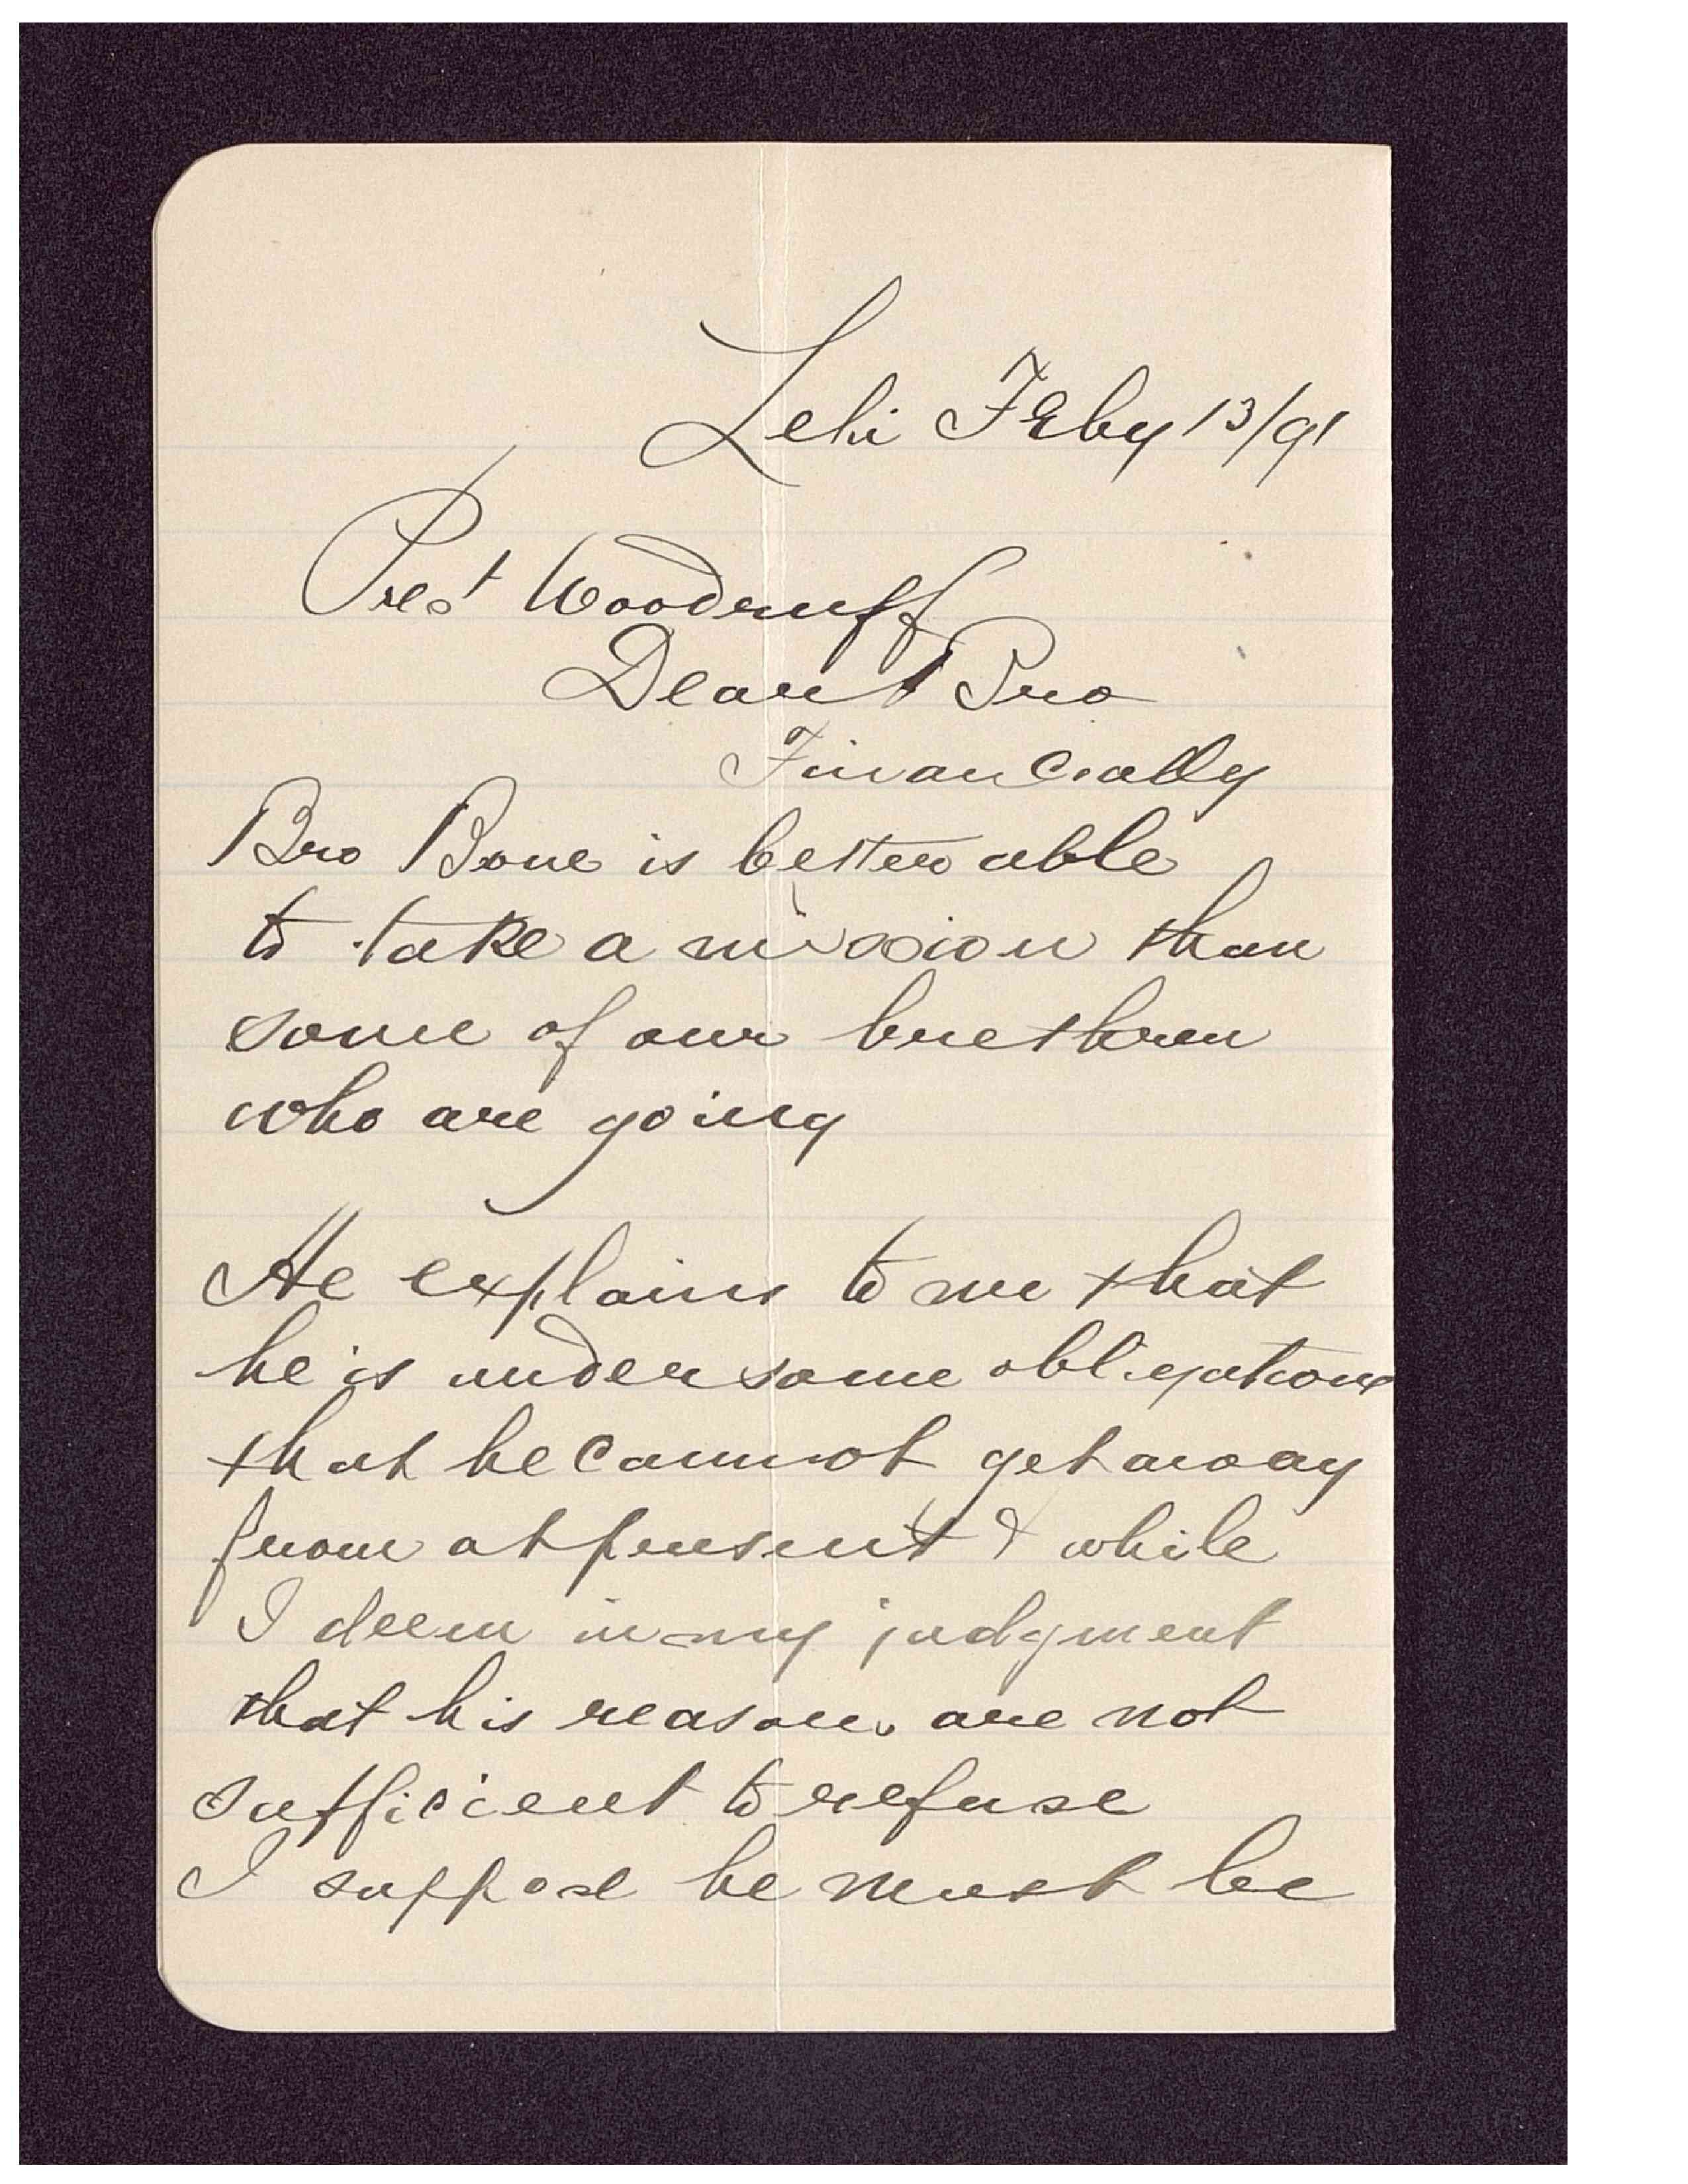 Lehi Feby 13/91
Prest Woodruff
Dear Bro
Financially
Bro Bone is better able
to take a mission than
some of our brethren
who are going
He explains to me that
he is under some obligations
that he cannot get away
from at present & while
I deem in my judgment
that his reasons are not
sufficient to refuse
I suppose he must be